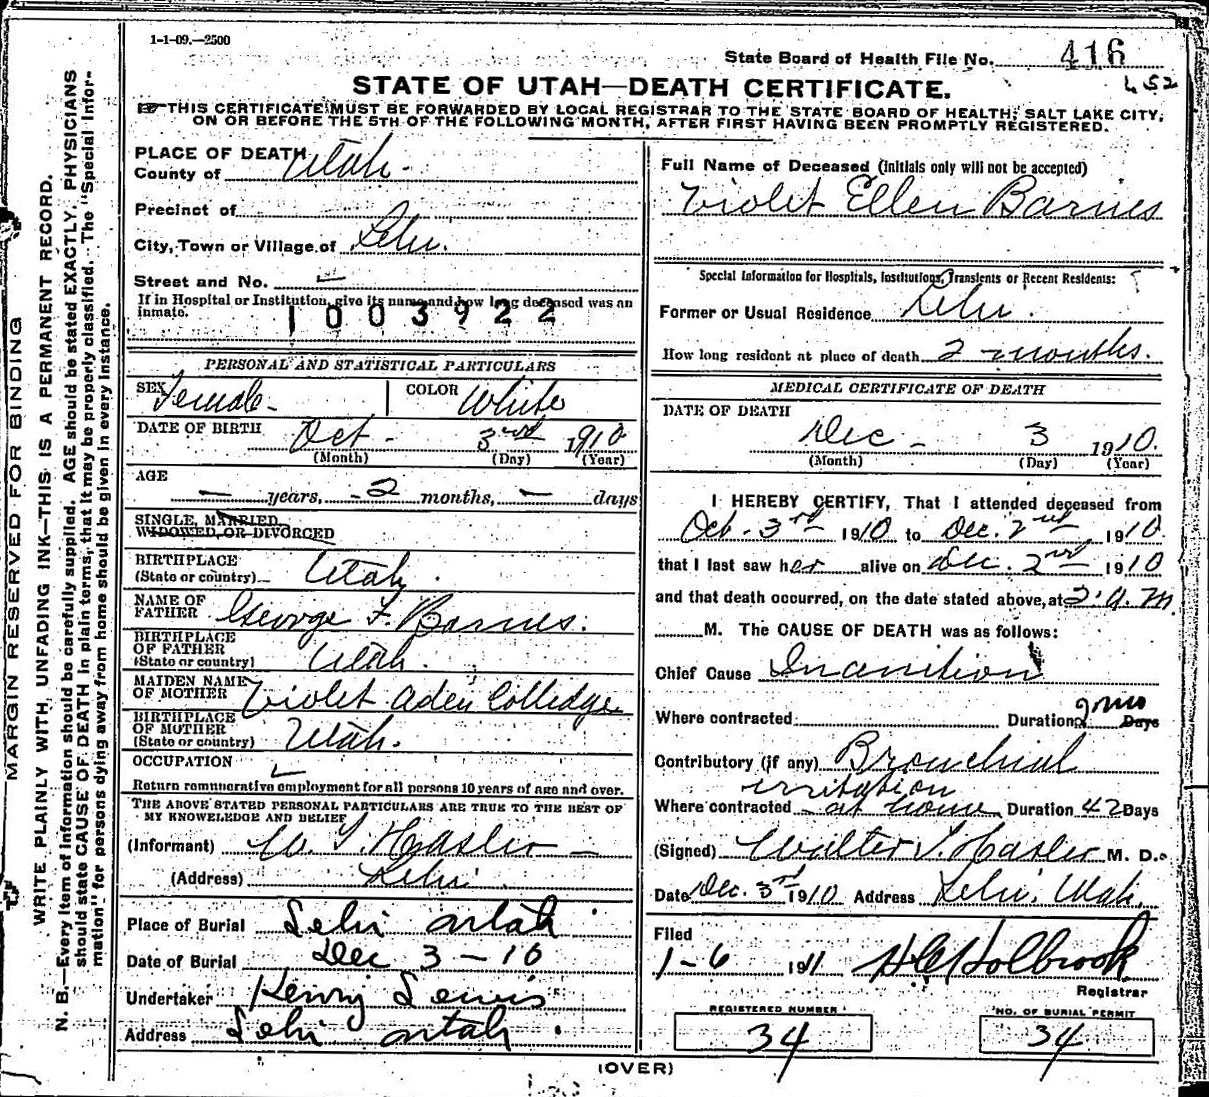 1-1-09.—2500
State Board of Health File No. 416
452
STATE OF UTAH—DEATH CERTIFICATE.
THIS CERTIFICATE MUST BE FORWARDED BY LOCAL REGISTRAR TO THE STATE BOARD OF HEALTH, SALT LAKE CITY,
ON OR BEFORE THE 5TH OF THE FOLLOWING MONTH, AFTER FIRST HAVING BEEN PROMPTLY REGISTERED.
MARGIN RESERVED FOR BINDING
WRITE PLAINLY WITH UNFADING INK—THIS IS A PERMANENT RECORD.
N. B.—Every item of information should be carefully supplied. AGE should be stated EXACTLY. PHYSICIANS
should state CAUSE OF DEATH in plain terms, that it may be properly classified. The "Special Infor-
mation" for persons dying away from home should be given in every instance.
PLACE OF DEATH
County of Utah.
Precinct of
City, Town or Village of Lehi.
Street and No. —
If in Hospital or Institution, give its name and how long deceased was an
inmate.
1003922
PERSONAL AND STATISTICAL PARTICULARS
SEX Female COLOR White
DATE OF BIRTH Oct. 3rd 1910
(Month) (Day) (Year)
AGE
— years, 2 months, — days
SINGLE, MARRIED,
WIDOWED, OR DIVORCED
BIRTHPLACE
(State or country) Utah.
NAME OF
FATHER George F. Barnes.
BIRTHPLACE
OF FATHER
(State or country) Utah.
MAIDEN NAME
OF MOTHER Violet Adei Colledge
BIRTHPLACE
OF MOTHER
(State or country) Utah.
OCCUPATION
Return remunerative employment for all persons 10 years of age and over.
THE ABOVE STATED PERSONAL PARTICULARS ARE TRUE TO THE BEST OF
MY KNOWLEDGE AND BELIEF
(Informant) W. T. Hasler
(Address) Lehi
Place of Burial Lehi Utah
Date of Burial Dec 3 - 10
Undertaker Henry Lewis
Address Lehi Utah
Full Name of Deceased (initials only will not be accepted)
Violet Ellen Barnes
Special Information for Hospitals, Institutions, Transients or Recent Residents:
Former or Usual Residence Lehi.
How long resident at place of death 2 months.
MEDICAL CERTIFICATE OF DEATH
DATE OF DEATH
Dec - 3 1910.
(Month) (Day) (Year)
I HEREBY CERTIFY, That I attended deceased from
Oct. 3rd 1910 to Dec. 2nd, 1910
that I last saw her alive on Dec. 2nd 1910
and that death occurred, on the date stated above, at 2 A.M.
M. The CAUSE OF DEATH was as follows:
Chief Cause Inanition
Where contracted Duration 2 mos Days
Contributory (if any) Bronchial
irritation
Where contracted at home Duration 42 Days
(Signed) Walter T. Hasler M. D.
Date Dec. 3rd 1910 Address Lehi, Utah.
Filed
1-6 1911 H C Holbrook
Registrar
REGISTERED NUMBER
34
NO. OF BURIAL PERMIT
34
(OVER)